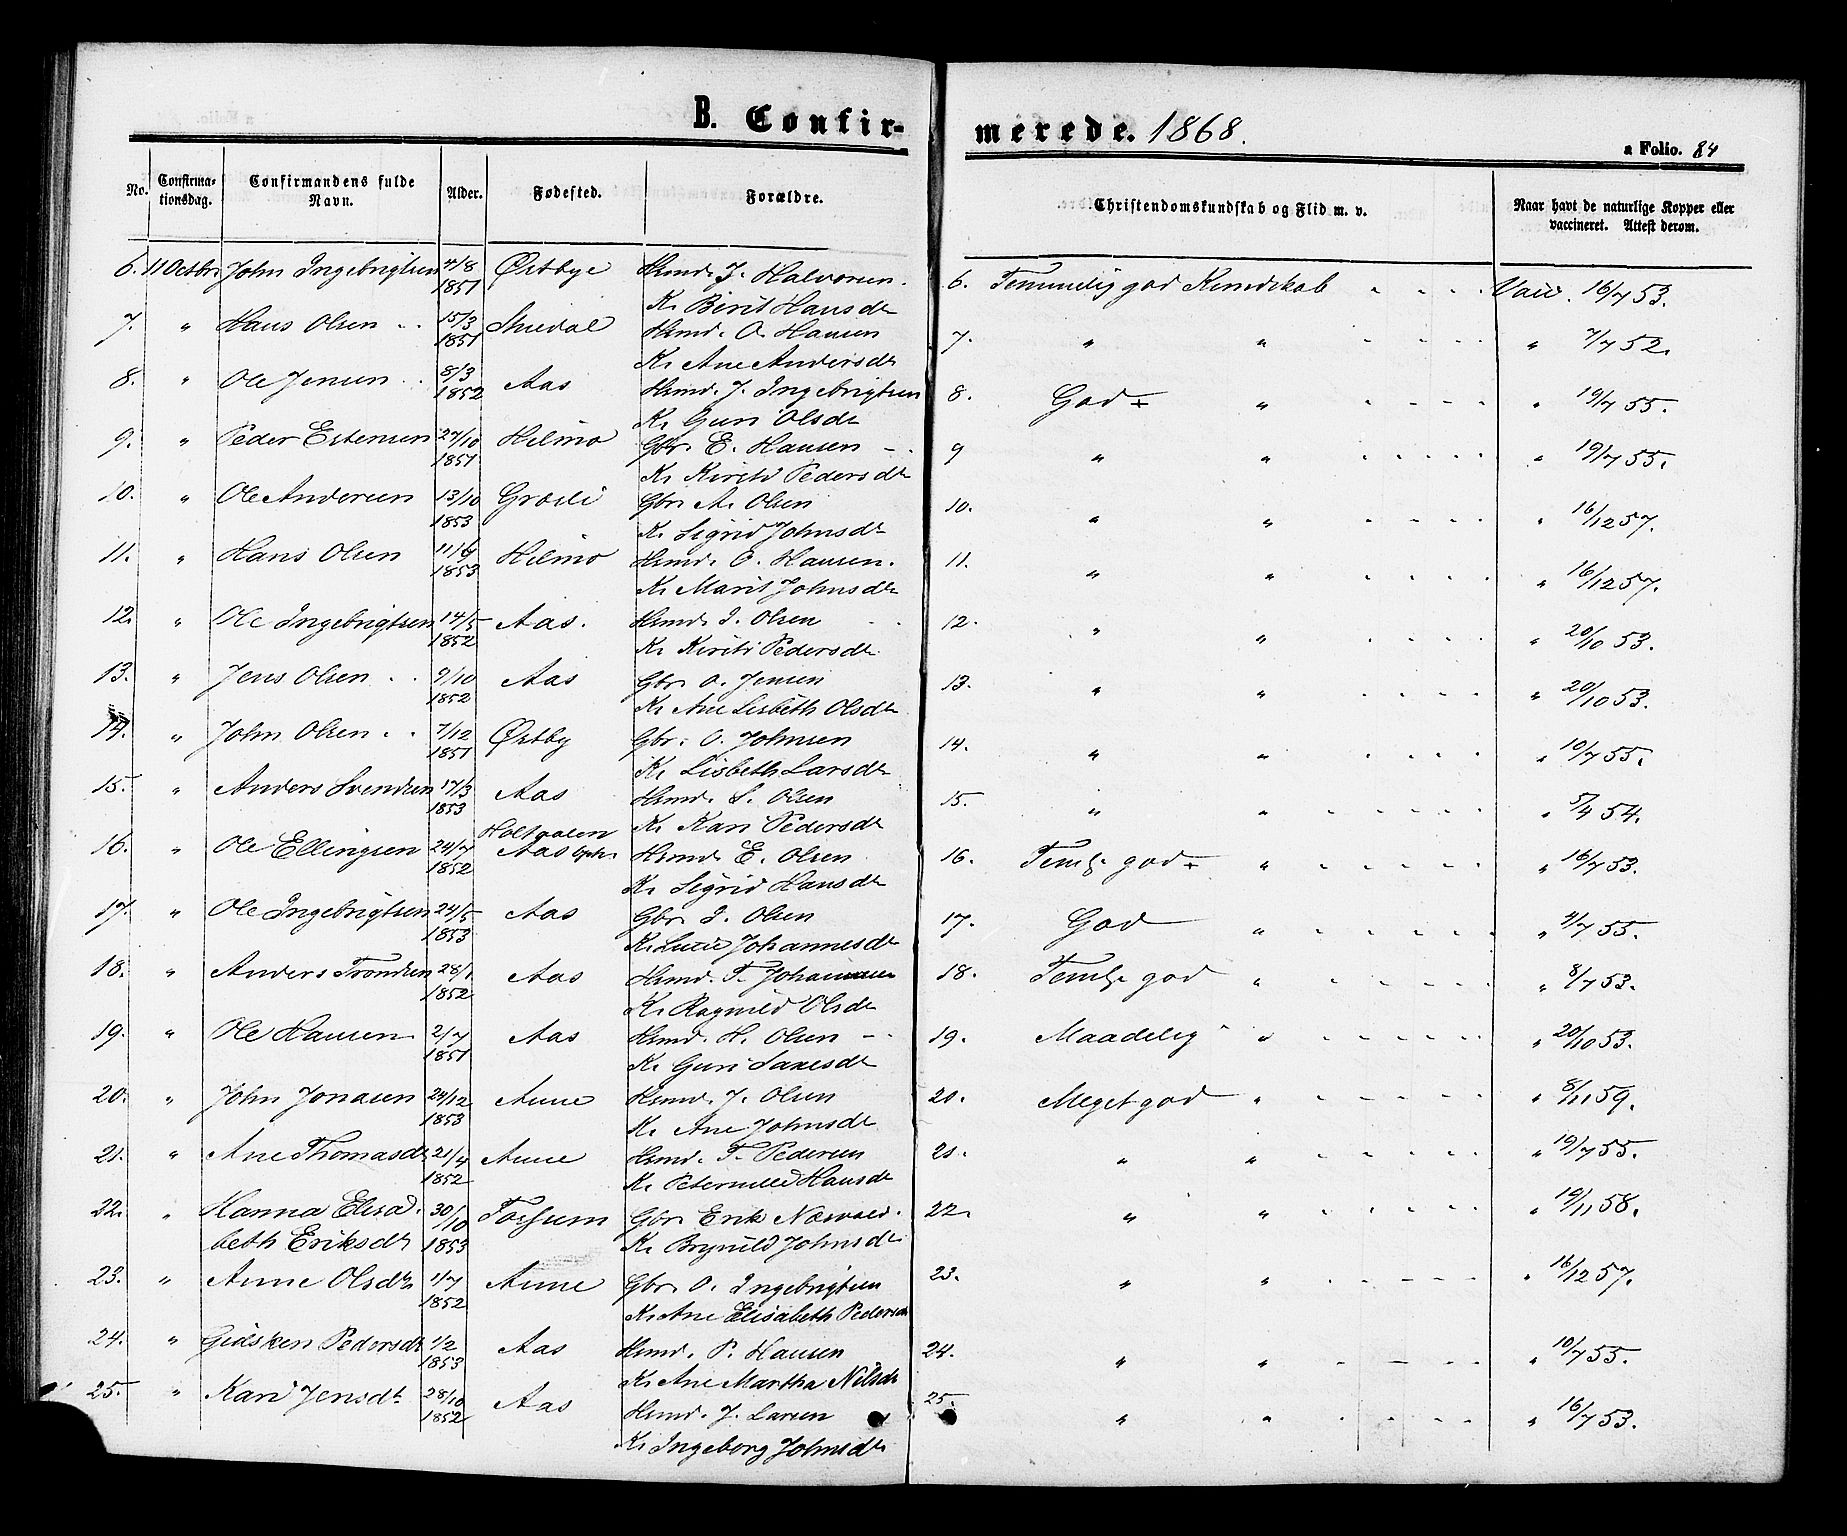 B. Confirmerede. 1868.
a Folio. 84
No. Confirmationsdag. Confirmandens fulde Navn. Alder. Fødested. Forældre. Christendomskundskab og Flid m. v. Naar havt de naturlige Kopper eller vaccineret. Attest derom.
6. 11 Octbr John Ingebrigtsen 4/8 1851 Østbye Hsmd. J. Halvorsen. 6. Temmelig god Kundskab Vacc. 16/7 53.
K. Berit Hansdr
7. " Hans Olsen 15/3 1851 Hsmd. O. Hansen 7. " " " 7/7 52.
K. Ane Andersdr
8. " Ole Jensen 8/3 1852 Aas Hsmd. J. Ingebrigtsen 8. God + " " 19/7 55.
K. Guri Olsdr
9. " Peder Estensen 27/10 1851 Hilmo Gbr. E. Hansen 9 " " " 19/7 55.
K. Kirsti Pedersdr
10. " Ole Andersen 13/10 1853 Græsli Gbr. A. Olsen 10. " " " 16/12 57.
K. Sigrid Johnsdr
11. " Hans Olsen 1853 Hilmo Hsmd. O. Hansen. 11. " " " 16/12 57.
K. Marit Johnsdr
12. " Ole Ingebrigtsen 14/5 1852 Aas. Hsmd. I. Olsen 12. " " " 20/10 53.
K. Kirsti Pedersdr
13. " Jens Olsen 9/10 1852 Aas Gbr. O. Jensen 13. " " " 20/10 53.
K. Ane Lisbeth Olsdr
14. " John Olsen 7/12 1851 Østby Gbr. O. Johnsen 14. " " " 10/7 55.
K. Lisbeth Larsdr
15. " Anders Svendsen 17/3 1853 Aas Hsmd. S. Olsen 15. " " " 5/4 54.
K. Kari Pedersdr
16. " Ole Ellingsen 24/7 1852 Holtaalen Aas Hsmd. E. Olsen 16. Teml. god + " " 16/7 53.
K. Sigrid Hansdr
17. " Ole Ingebrigtsen 24/5 1853 Aas Gbr. I. Olsen 17. God " " 4/7 55.
K. Lucie Johannesdr
18. " Anders Trondsen 28/1 1852 Aas Hsmd. T. Johannesen 18. Teml. god " " 8/7 53.
K. Ragnild Olsdr
19. " Ole Hansen 2/7 1851 Aas Hsmd. H. Olsen 19. Maadelig " " 20/10 53.
K. Guri Saxesdr
20. " John Jonasen 24/12 1853 Aune Hsmd. J. Olsen 20. Meget god " " 8/11 59.
K. Ane Johnsdr
21. " Ane Thomasdr 21/4 1852 Aune Hsmd. T. Pedersen 21. " " " 19/7 55.
K. Peternille Hansdr
22. " Hanna Elisabeth Eriksdr 30/10 1853 Fossum Gbr. Erik Næsvold. 22. " " " 19/11 58.
K. Brynild Johnsdr
23. " Anne Olsdr 1/7 1852 Aune Gbr. O. Ingebrigtsen 23. " " " 16/12 57.
K. Ane Elisabeth Pedersdr
24. " Gidsken Pedersdr 1/2 1853 Aas Hsmd. P. Hansen 24. " " " 10/7 55.
K. Ane Martha Nilsdr
25. " Kari Jensdr 28/10 1852 Aas Hsmd. J. Larsen 25. " " " 16/7 53.
K. Ingeborg Johnsdr